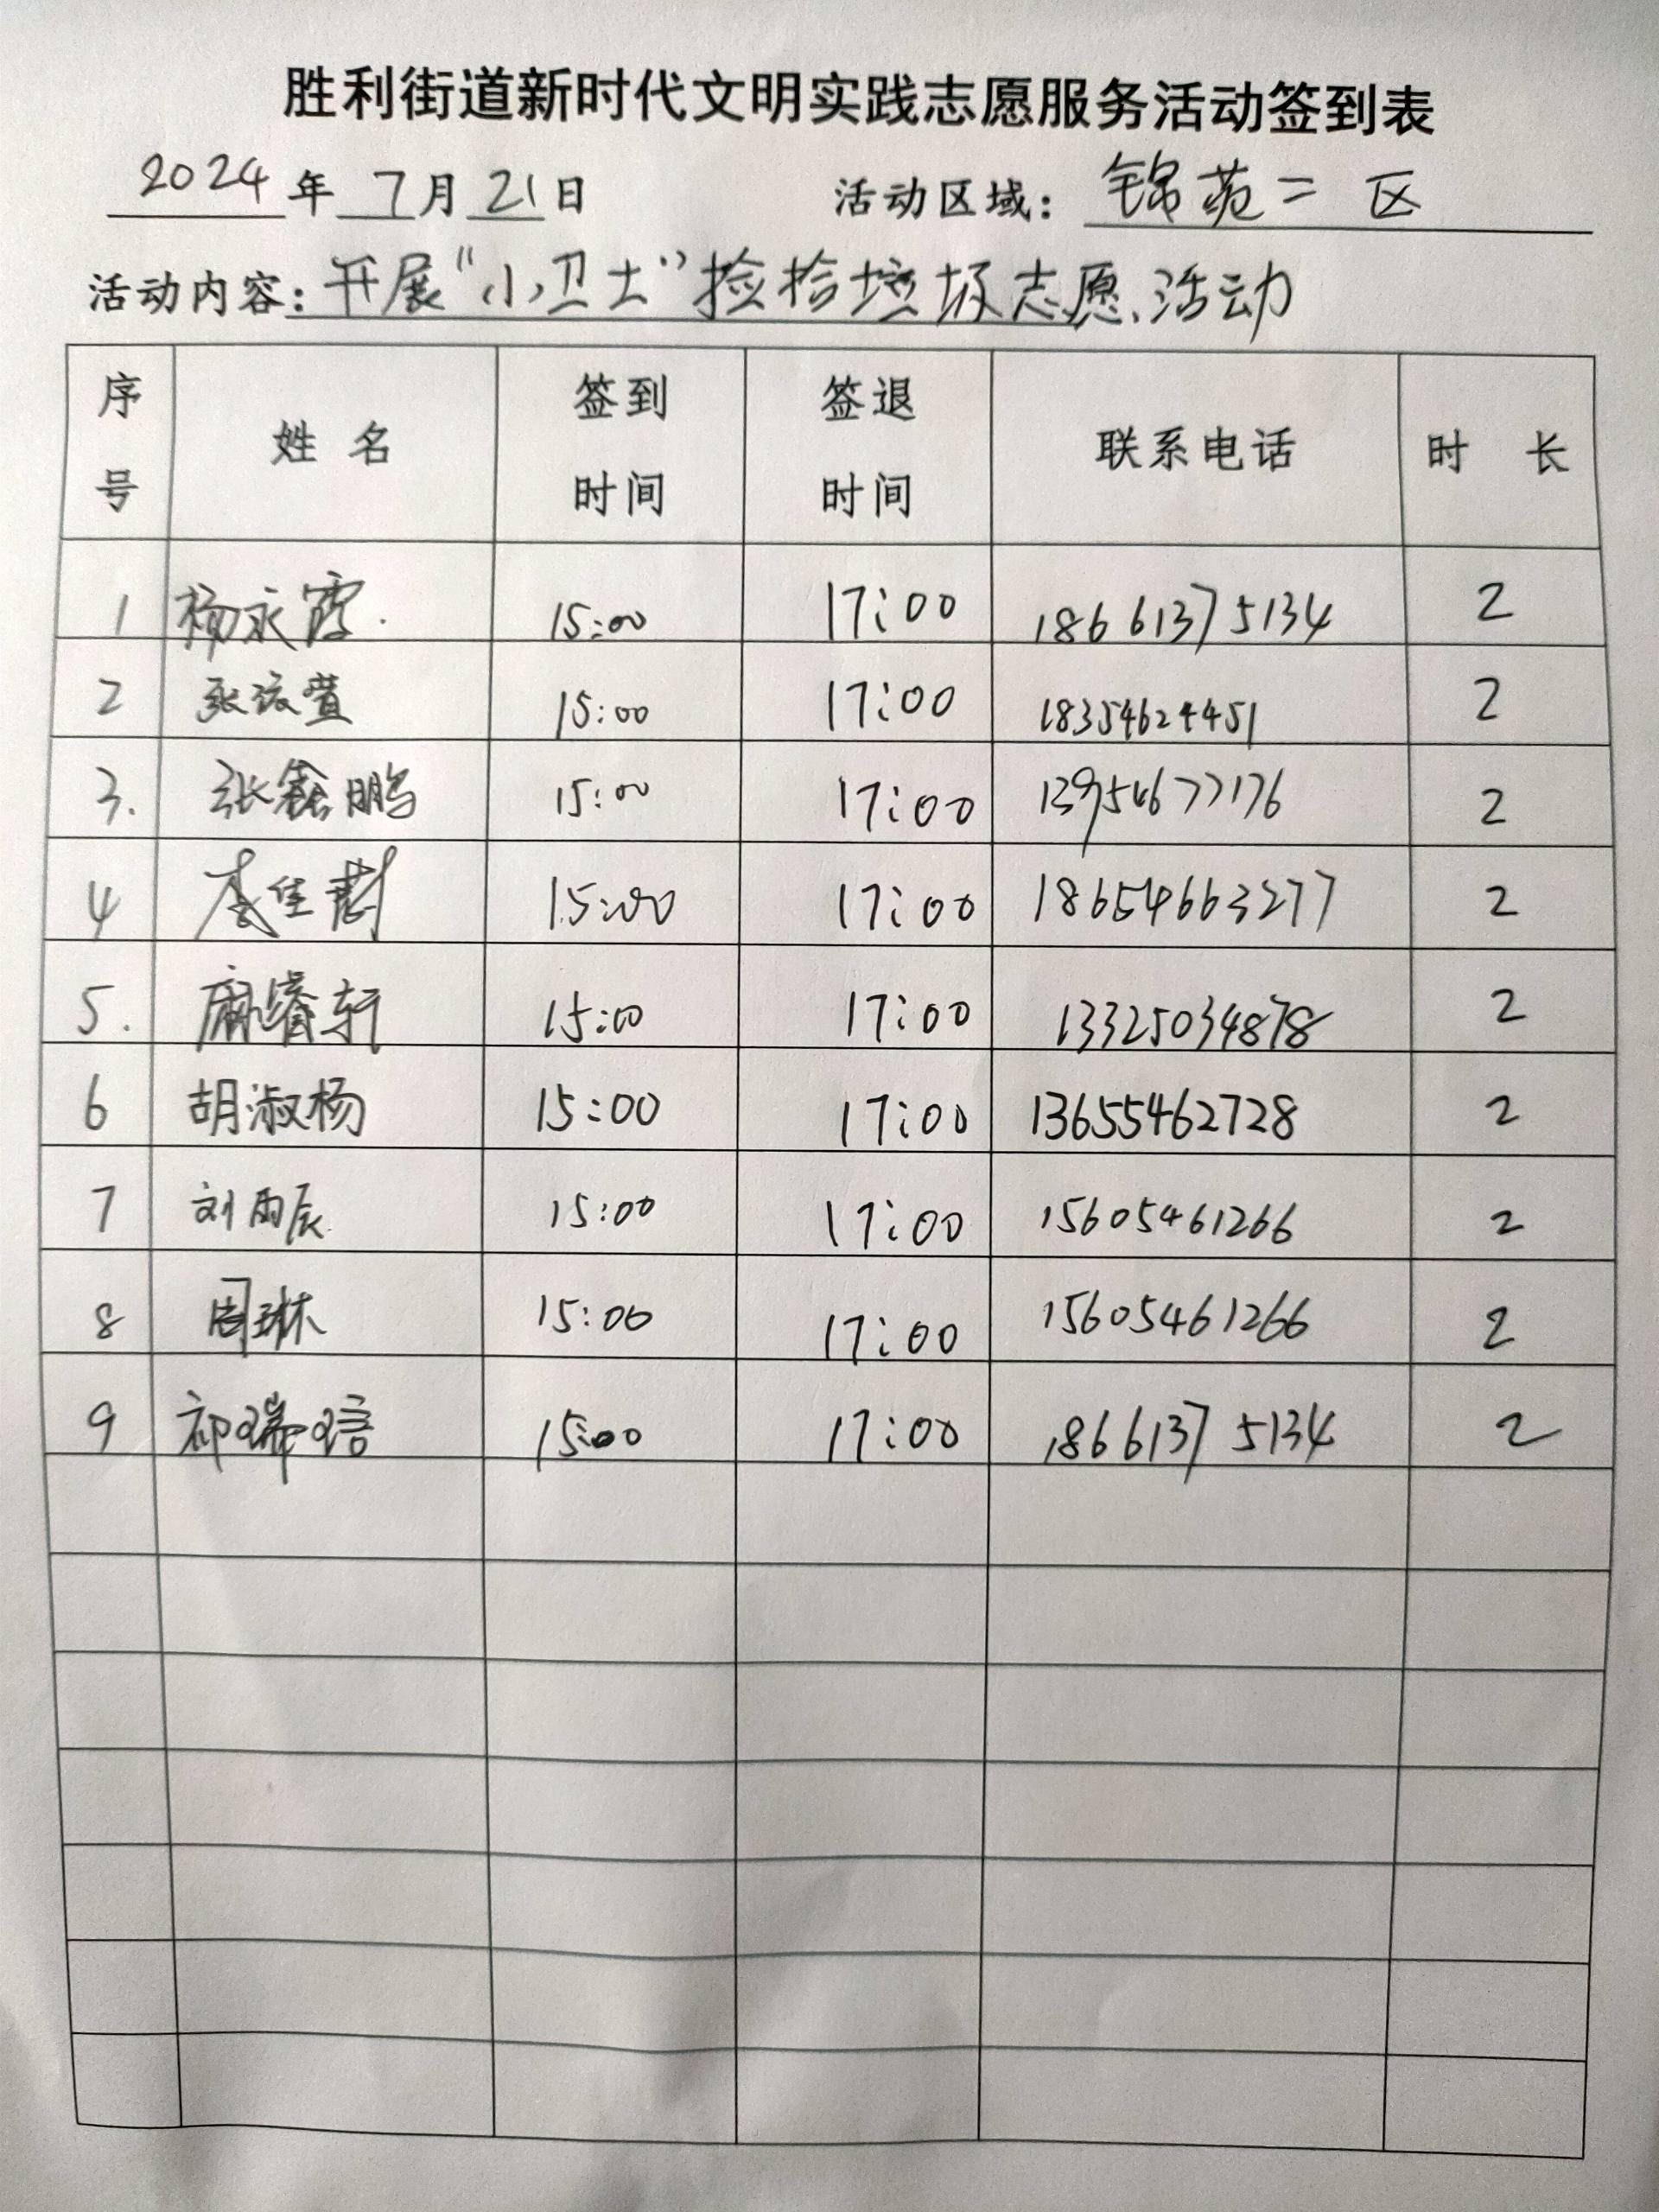 胜利街道新时代文明实践志愿服务活动签到表
2024年7月21日 活动区域：锦苑二区
活动内容：开展“小卫士”捡拾垃圾志愿活动
序号 姓名 签到时间 签退时间 联系电话 时长
1 杨永霞 15:00 17:00 18661375134 2
2 张 萱 15:00 17:00 18354624451 2
3. 张鑫鹏 15:00 17:00 13954677176 2
4 李佳 15:00 17:00 18654663277 2
5. 麻睿轩 15:00 17:00 13325034878 2
6 胡淑杨 15:00 17:00 13655462728 2
7 刘雨辰 15:00 17:00 15605461266 2
8 周琳 15:00 17:00 15605461266 2
9 祁瑞 15:00 17:00 18661375134 2